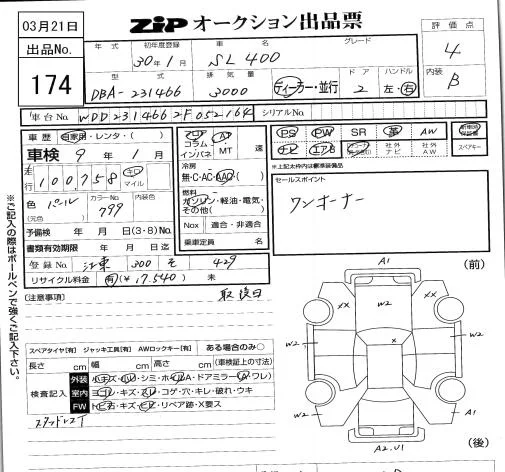 03月21日
ZIP オークション出品票
評価点
4
内装
B
出品No.
174
年式
初年度登録
30年1月
車名
SL400
グレード
型式
DBA-231466
排気量
3000
ディーラー・並行
ドア
2
ハンドル
左・右
車台No.
WDD2314662F052164
シリアルNo.
車歴
自家用・レンタ・( )
車検 9年 1月
走行
100,758
キロ
マイル
色
パール
(元色)
カラーNo.
799
内装色
予備検 年 月 日(3・8)No.
書類有効期限 年 月 日迄
登録No.
江東 300 そ 429
リサイクル料金
有(¥17.540) 未
フロア
コラム
インパネ
AT
MT
速
冷房
無・C・AC・AAC・( )
燃料
ガソリン・軽油・電気・
その他( )
Nox 適合・非適合
乗車定員 名
PS
PW
SR
革
AW
ナビ
エアB
社外
ナビ
社外
AW
スペアキー
※上記太枠内は標準装備品
セールスポイント
ワンオーナー
〔注意事項〕
取説日
※ご記入の際はボールペンで強くご記入下さい。
スペアタイヤ[有] ジャッキ工具[有] AWロックキー[有] ある場合のみ○
長さ cm 幅 cm 高さ cm (車検証上の寸法)
検査記入
外装
小キズ・小凹・シミ・ホイルA・ドアミラー(A・ワレ)
室内
ヨゴレ・キズ・スレ・コゲ・穴・キレ・破れ・ウキ
FW
トビ石・キズ・ヒビ・リペア跡・X要ス
(前)
A1
XX
W2
XX
W2
W2
x
W2
W2
A1
A2.U1
(後)